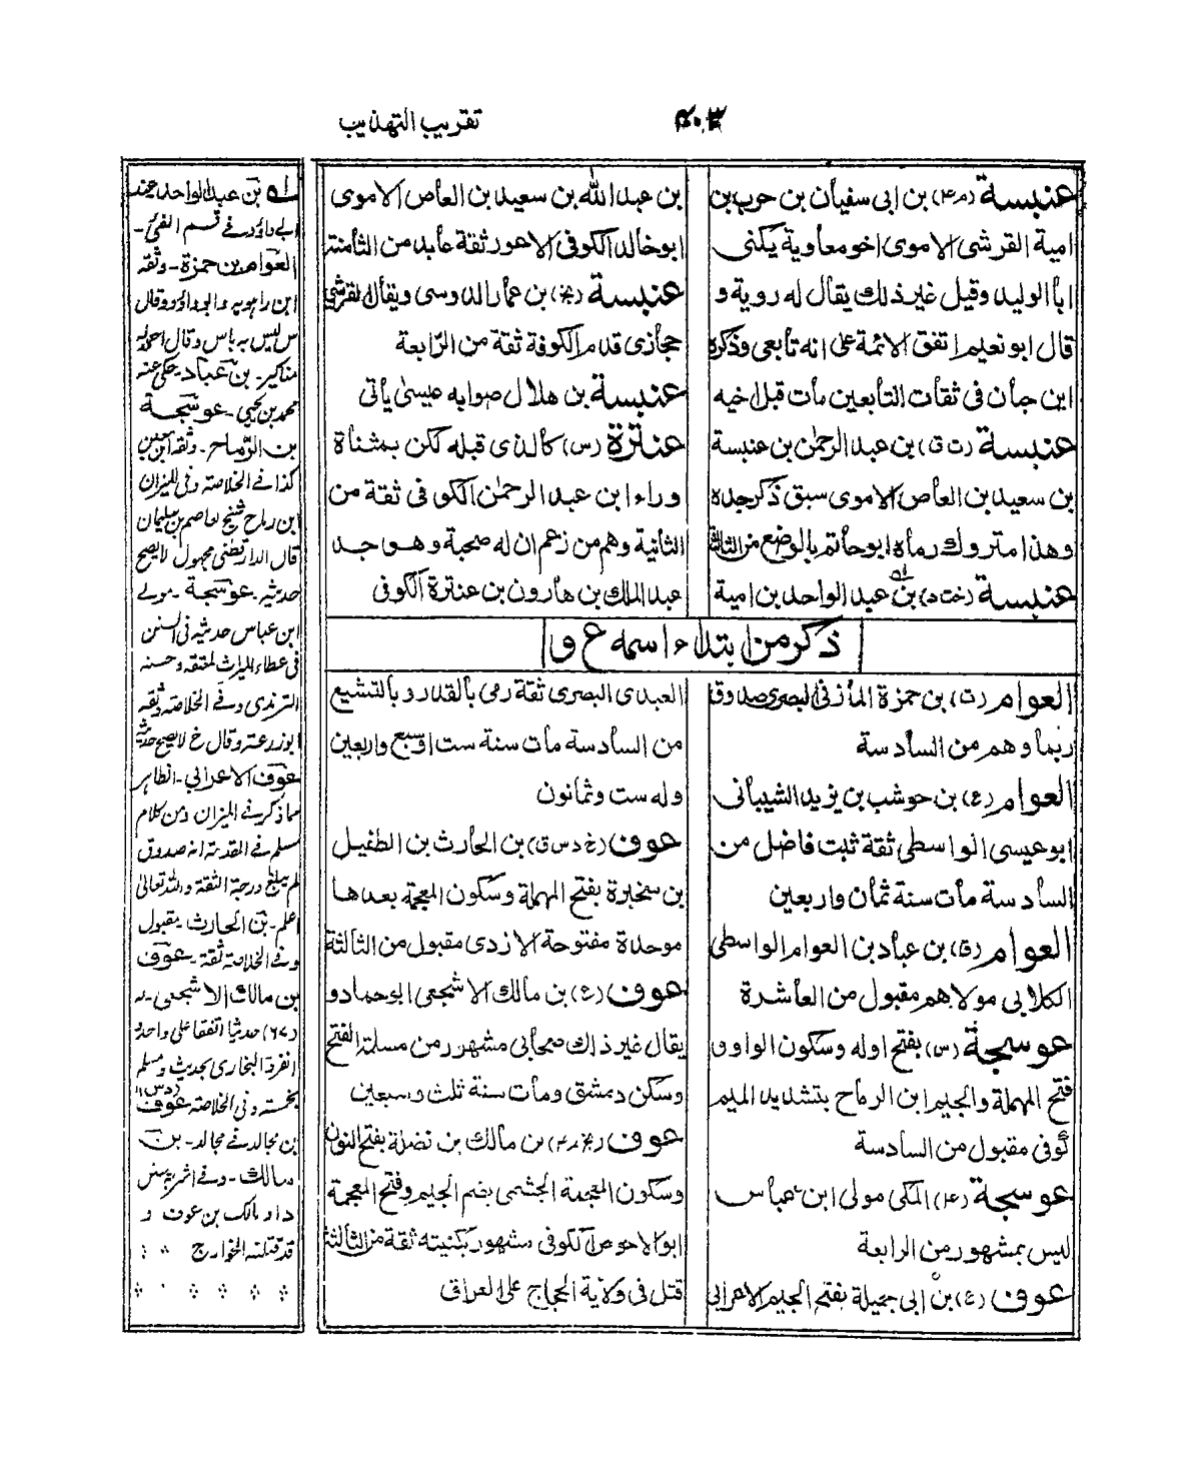 تقريب التهذيب
٣٠٢
عنبسة (م ٤) بن ابى سفيان بن حرب بن
امية القرشى الاموى اخو معاوية يكنى
ابا الوليد وقيل غير ذلك يقال له روية و
قال ابو نعيم اتفق الائمة على انه تابعى وذكره
ابن حبان فى ثقات التابعين مات قبل اخيه
عنبسة (ت ق) بن عبد الرحمٰن بن عنبسة
بن سعيد بن العاص الاموى سبق ذكر جده
وهذا متروك رماه ابو حاتم بالوضع من الثالثة
عنبسة (خت د) بن عبد الواحد بن امية
بن عبد الله بن سعيد بن العاص الاموى
ابو خالد الكوفى الاعور ثقة عابد من الثامنة
عنبسة (بخ) بن عمار الدوسى ويقال القرشى
حجازى قدم الكوفة ثقة من الرابعة
عنبسة بن هلال صوابه عيسىٰ يأتى
عنترة (س) كالذى قبله لكن بمثناة
وراء ابن عبد الرحمٰن الكوفى ثقة من
الثانية وهم من زعم ان له صحبة وهو جد
عبد الملك بن هارون بن عنترة الكوفى
ذكر من ابتداء اسمه ع و
العوام (ت) بن حمزة المازنى البصرى صدوق
ربما وهم من السادسة
العوام (ع) بن حوشب بن يزيد الشيبانى
ابو عيسى الواسطى ثقة ثبت فاضل من
السادسة مات سنة ثمان واربعين
العوام (ق) بن عباد بن العوام الواسطى
الكلابى مولاهم مقبول من العاشرة
عوسجة (س) بفتح اوله وسكون الواو و
فتح المهملة والجيم ابن الرماح بتشديد الميم
كوفى مقبول من السادسة
عوسجة (٤) المكى مولى ابن عباس
ليس بمشهور من الرابعة
عوف (ع) بن ابى جميلة بفتح الجيم الاعرابى
العبدى البصرى ثقة رمى بالقدر وبالتشيع
من السادسة مات سنة ست او سبع واربعين
وله ست وثمانون
عوف (خ د س ق) بن الحارث بن الطفيل
بن سخبرة بفتح المهملة وسكون المعجمة بعدها
موحدة مفتوحة الازدى مقبول من الثالثة
عوف (ع) بن مالك الاشجعى ابو حماد و
يقال غير ذلك صحابى مشهور من مسلمة الفتح
وسكن دمشق ومات سنة ثلث وسبعين
عوف (بخ م ٤) بن مالك بن نضلة بفتح النون
وسكون المعجمة الجشمى بضم الجيم وفتح المعجمة
ابو الاحوص الكوفى مشهور بكنيته ثقة من الثالثة
قتل فى ولاية الحجاج على العراق
له بن عبد الواحد عند
ابى داؤد فى قسم الفئ -
العوام بن حمزة - وثقه
ابن راهويه وابو داؤد وقال
س ليس به باس وقال احمد له
مناكير - بن عباد - حكى عنه
محمد بن يحيى - عوسجة
بن الرماح - وثقه ابن معين
كذا فى الخلاصة وفى الميزان
ابن رماح شيخ لعاصم بن سليمان
قال الدارقطنى مجهول لا يصح
حديثه - عوسجة - مولى
ابن عباس حديثه فى السنن
فى عطاء الميراث لمعتقه وحسنه
الترمذى وفى الخلاصة وثقه
ابو زرعة وقال خ لا يصح حديثه
عوف الاعرابى - الظاهر
مما ذكر فى الميزان ومن كلام
مسلم فى المقدمة انه صدوق
لم يبلغ درجة الثقة والله تعالى
اعلم - بن الحارث - مقبول
وفى الخلاصة ثقة - عوف
بن مالك الاشجعى - له
(٦٧) حديثا اتفقا على واحد و
انفرد البخارى بحديث ومسلم
بخمسة وفى الخلاصة عوف (د س)
بن مجالد فى مجالد - بن
مالك - وفى
مالك بن عوف و
قد قتلته الخوارج